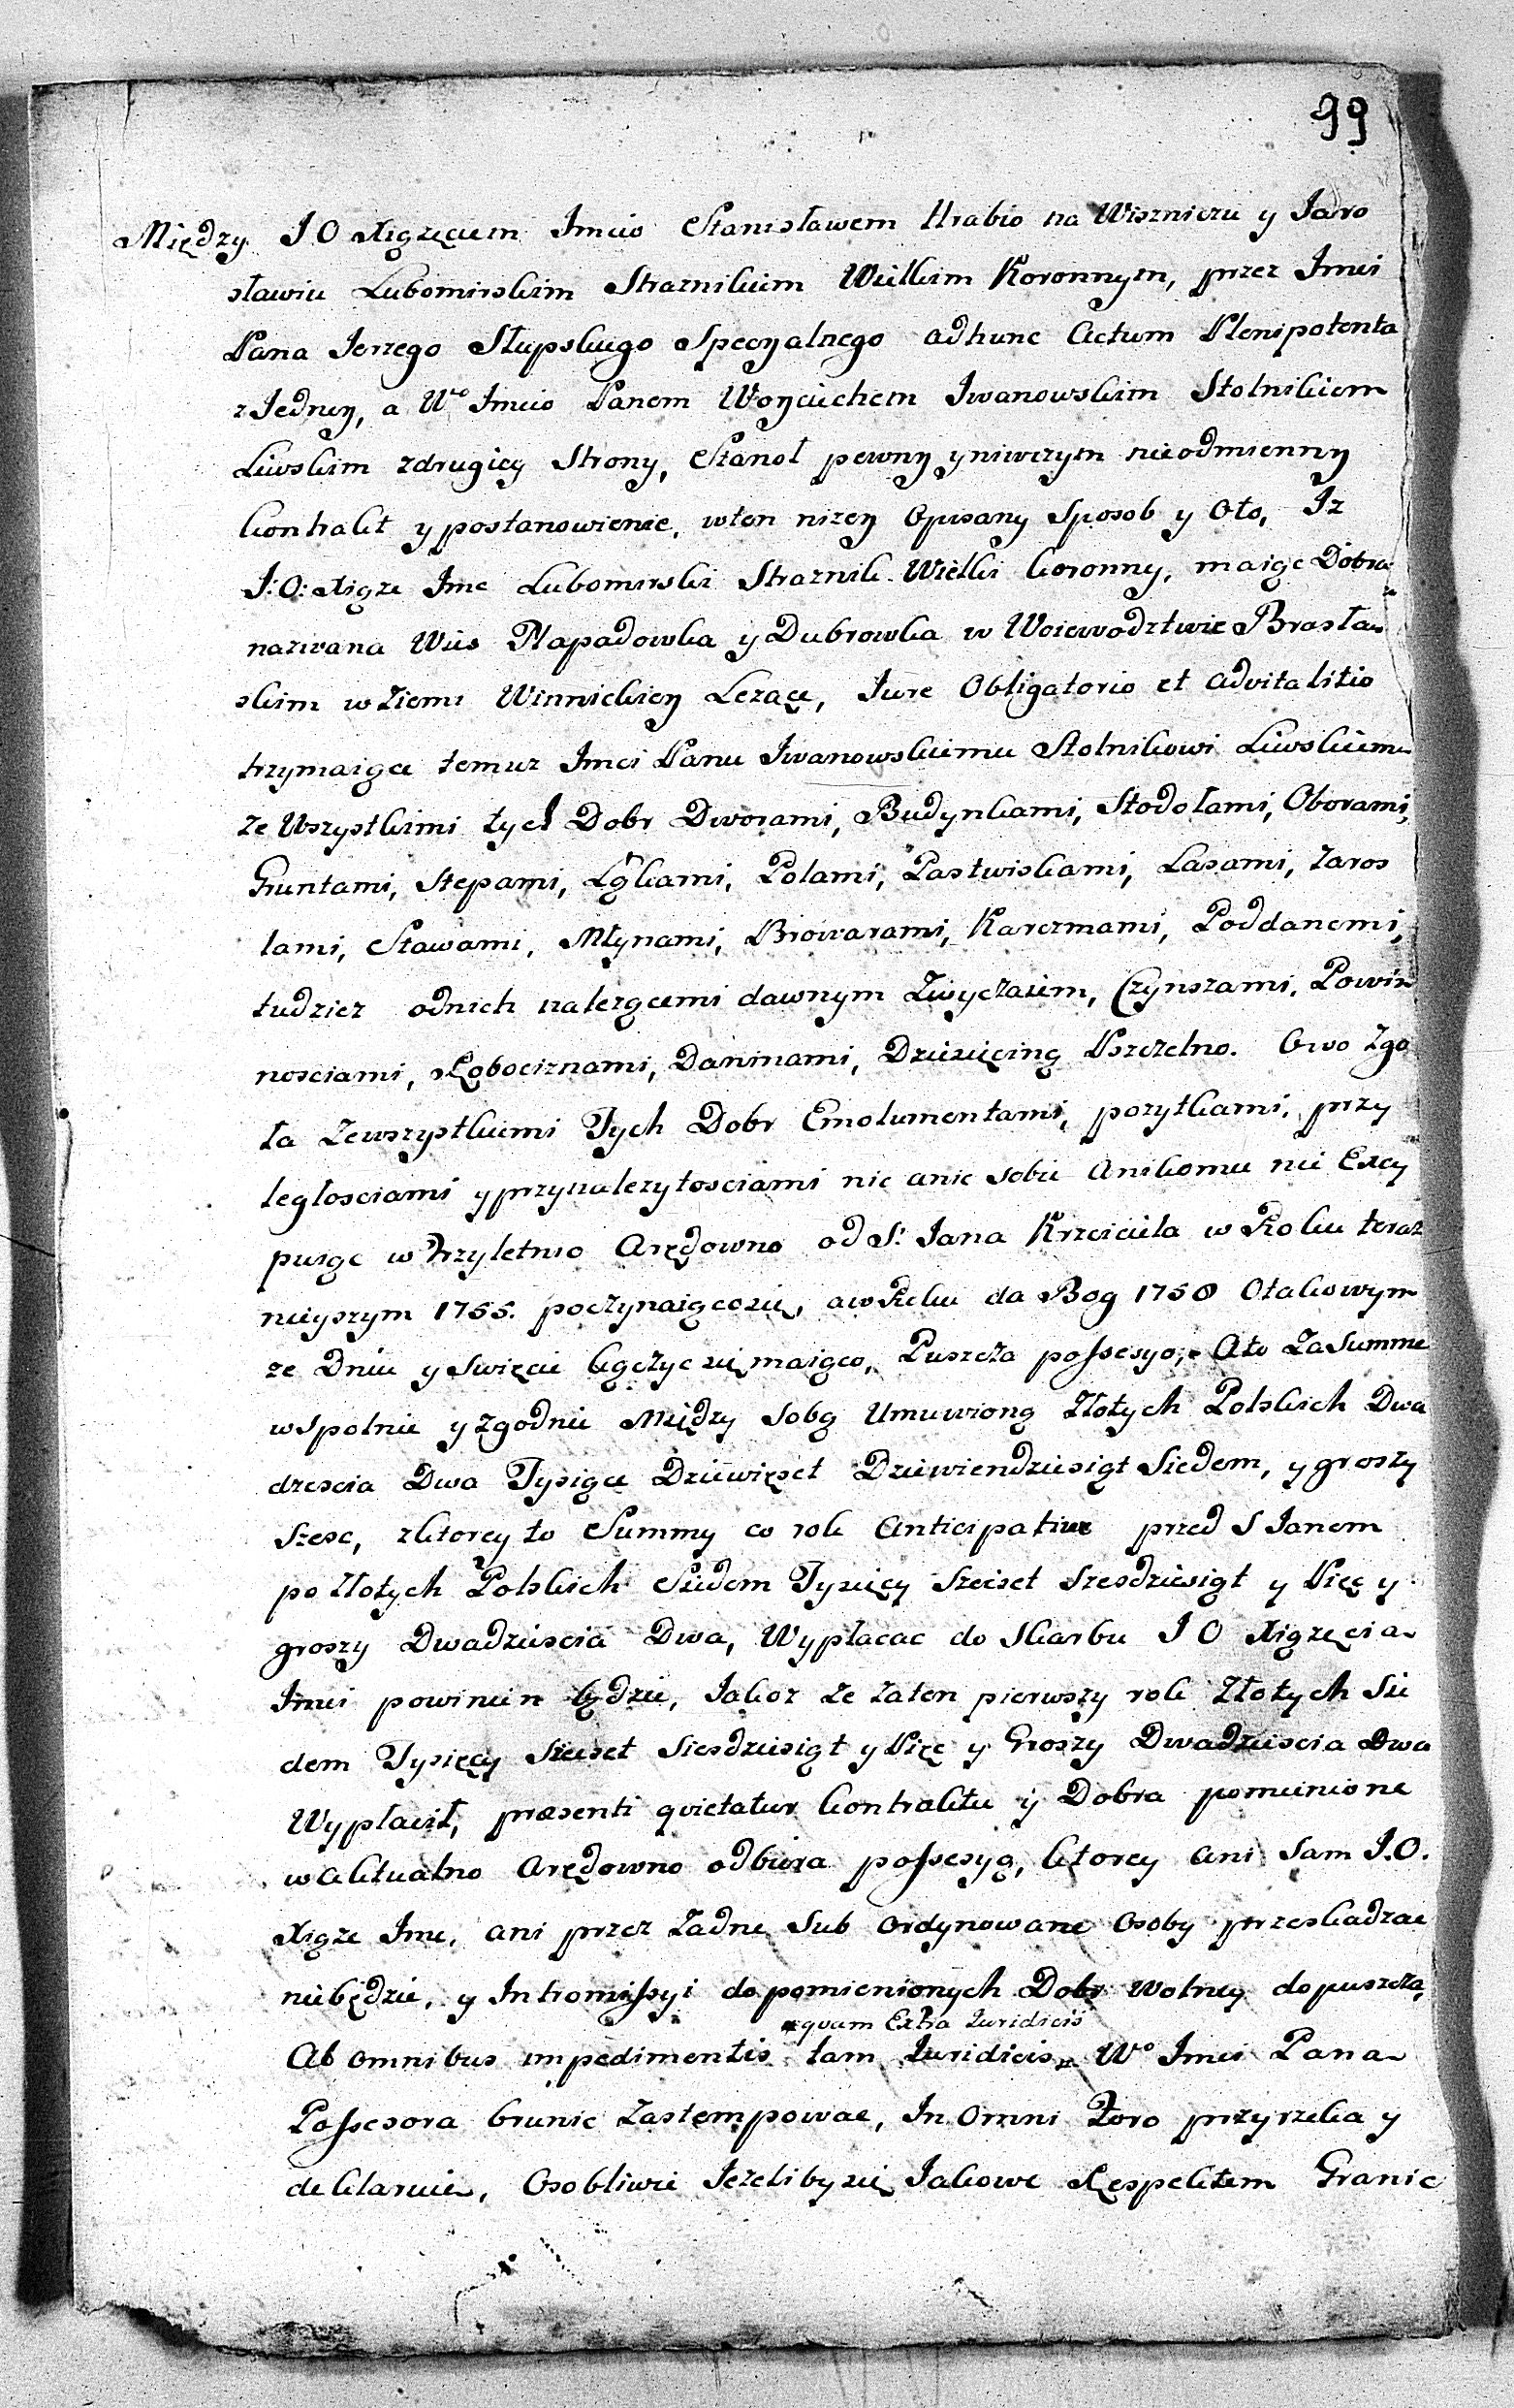 99
Między J O Xiążęciem Jmcią Stanisławem Hrabią na Wiszniczu y Jaro
sławiu Lubomirskim Straznikiem Wielkim Koronnym, przez Jmci
Pana Jerzego Słupskiego Specyalnego adhunc Actum Plenipotenta
z Jedney, a Wo Jmcią Panem Woyciechem Jwanowskim Stolnikiem
Liwskim zdrugiey Strony, Stanoł pewny yniwczym nieodmienny
kontrakt y postanowienie, wten nizey Opisany Sposob y Oto, Iz
J: O: Xiąze Jmc Lubomirski Straznik Wielki koronny, maiąc Dobra
nazwana Wies Napadowka y Dubrowka w Woiewodztwie Brasław
skim w Ziemi Winnickiey Lezące, Jure Obligatorio et advitalitio
trzymaiące temuz Jmci Panu Jwanowskiemu Stolnikowi Liwskiemu
ze Wszystkimi tych Dobr Dworami, Budynkami, Stodołami, Oborami,
Gruntami, Stepami, Łąkami, Polami, Pastwiskami, Lasami, Zaros
lami, Stawami, Młynami, Browarami, Karczmami, Poddanemi,
tudziez odnich nalezącemi dawnym Zwyczaiem, Czynszami, Powin
nosciami, Robociznami, Daninami, Dziesięciną Pszczelną. Owo Zgo
ła Zewszystkiemi Tych Dobr Emolumentami, pozytkami, przy
ległosciami yprzynalezytosciami nic anic sobie anikomu nie Excy
puiąc w trzyletnią Arędowną od S: Jana Krzciciela w Roku teraz
nieyszym 1755. poczynaiącąsię, awRoku da Bog 1758 Otakowym
ze Dniu y Swięcie kączyc się maiącą, Puszcza possesyą, Ato Zasumme
wspolnie yzgodnie Między Sobą Umuwioną Złotych Polskich Dwa
dzescia Dwa Tysiące Dziewięset Dziewiendziesiąt Siedem, y groszy
Szesc, zktorey to Summy co rok Anticipative przed S Janem
po Złotych Polskich Siedem Tysięcy Szeiset Szesdziesiąt y Pięc y
groszy Dwadziescia Dwa, Wypłacac do Skarbu J O Xiązęcia
Jmci powinien będzie, Jakoz ze Zaten pierwszy rok Złotych Sie
dem Tysięcy Szeiset Siesdziesiąt y Pięc y Groszy Dwadziescia Dwa
Wypłacił, præsenti qvietatur kontraktu y Dobra pomienione
wAktualną Arędowną odbiera possesyą, ktorey ani Sam J.O.
Xiąze Jmc, ani przez Zadne Sub ordynowane Osoby przeskadzac
niebędzie, y Intromissyi do pomienionych Dobr Wolney dopuszcza,
quam Extra Iuridicis
Ab omnibus impedimentis tam Iuridicis Wo Jmci Pana
Possesora brunic Zastempowac, In Omni Foro przyrzeka y
deklaruie, Osobliwie Jezeliby się Jakowe Respektem Granic